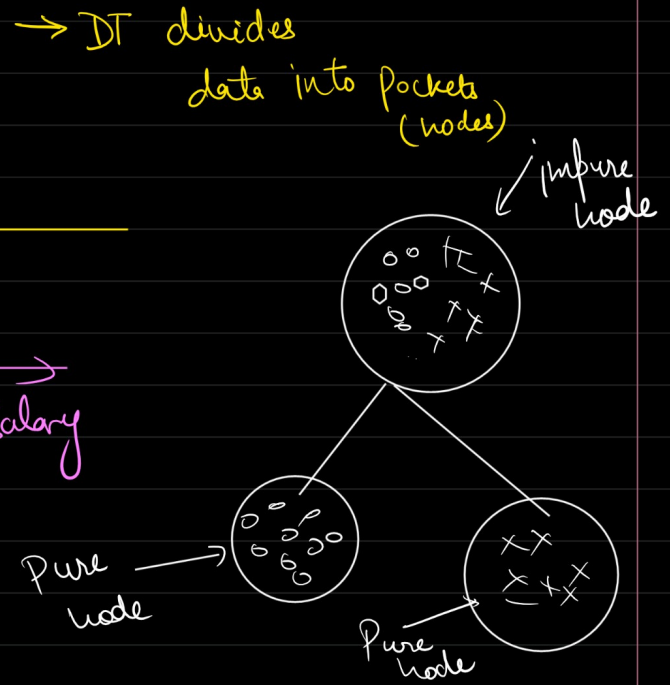 → DT divides
data into pockets
(nodes)
impure
node
alary
Pure
node
Pure
node